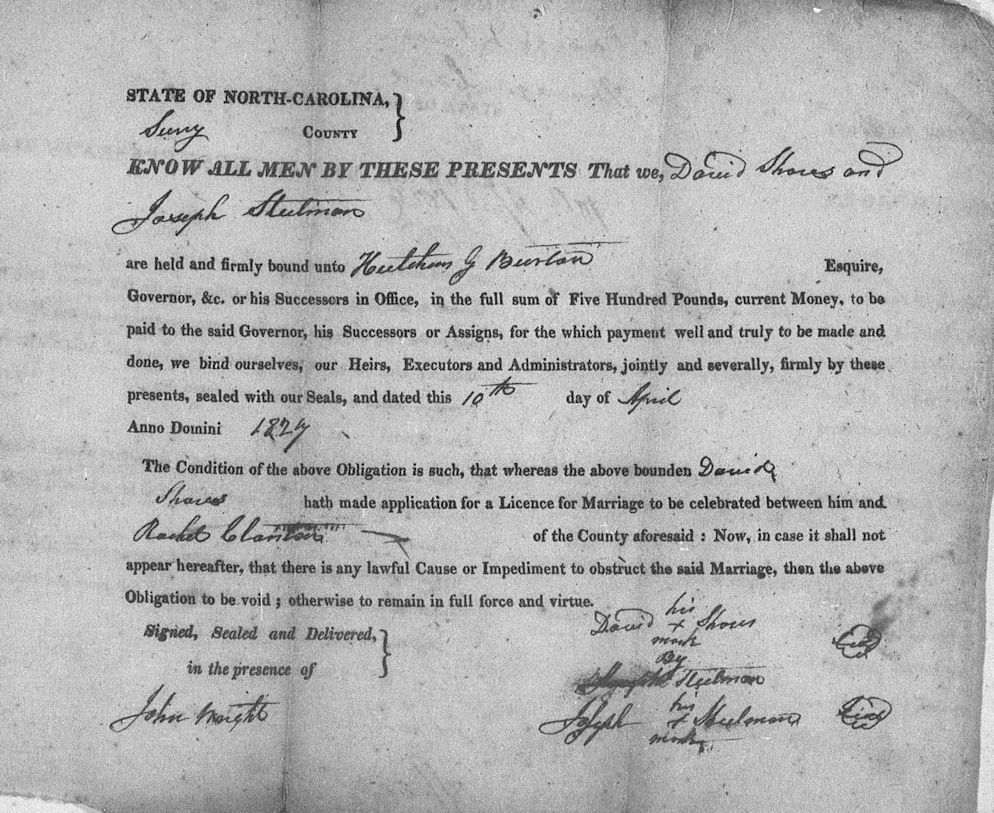 STATE OF NORTH-CAROLINA, }
Surry COUNTY
KNOW ALL MEN BY THESE PRESENTS That we, David Shores and
Joseph Steelman
are held and firmly bound unto Hutchins G Burton Esquire,
Governor, &c. or his Successors in Office, in the full sum of Five Hundred Pounds, current Money, to be
paid to the said Governor, his Successors or Assigns, for the which payment well and truly to be made and
done, we bind ourselves, our Heirs, Executors and Administrators, jointly and severally, firmly by these
presents, sealed with our Seals, and dated this 10th day of April
Anno Domini 1827
The Condition of the above Obligation is such, that whereas the above bounden David
Shores hath made application for a Licence for Marriage to be celebrated between him and
Rachel Clanton of the County aforesaid : Now, in case it shall not
appear hereafter, that there is any lawful Cause or Impediment to obstruct the said Marriage, then the above
Obligation to be void ; otherwise to remain in full force and virtue.
his
David + Shores
mark
Signed, Sealed and Delivered, }
By
in the presence of
Steelman
his
John Wright Joseph + Steelman
mark